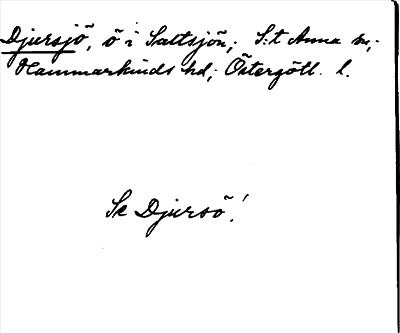 Djursjö, ö i Saltsjön; S:t Anna sn;
Hammarkinds hd; Östergötl. l.
Se Djursö!